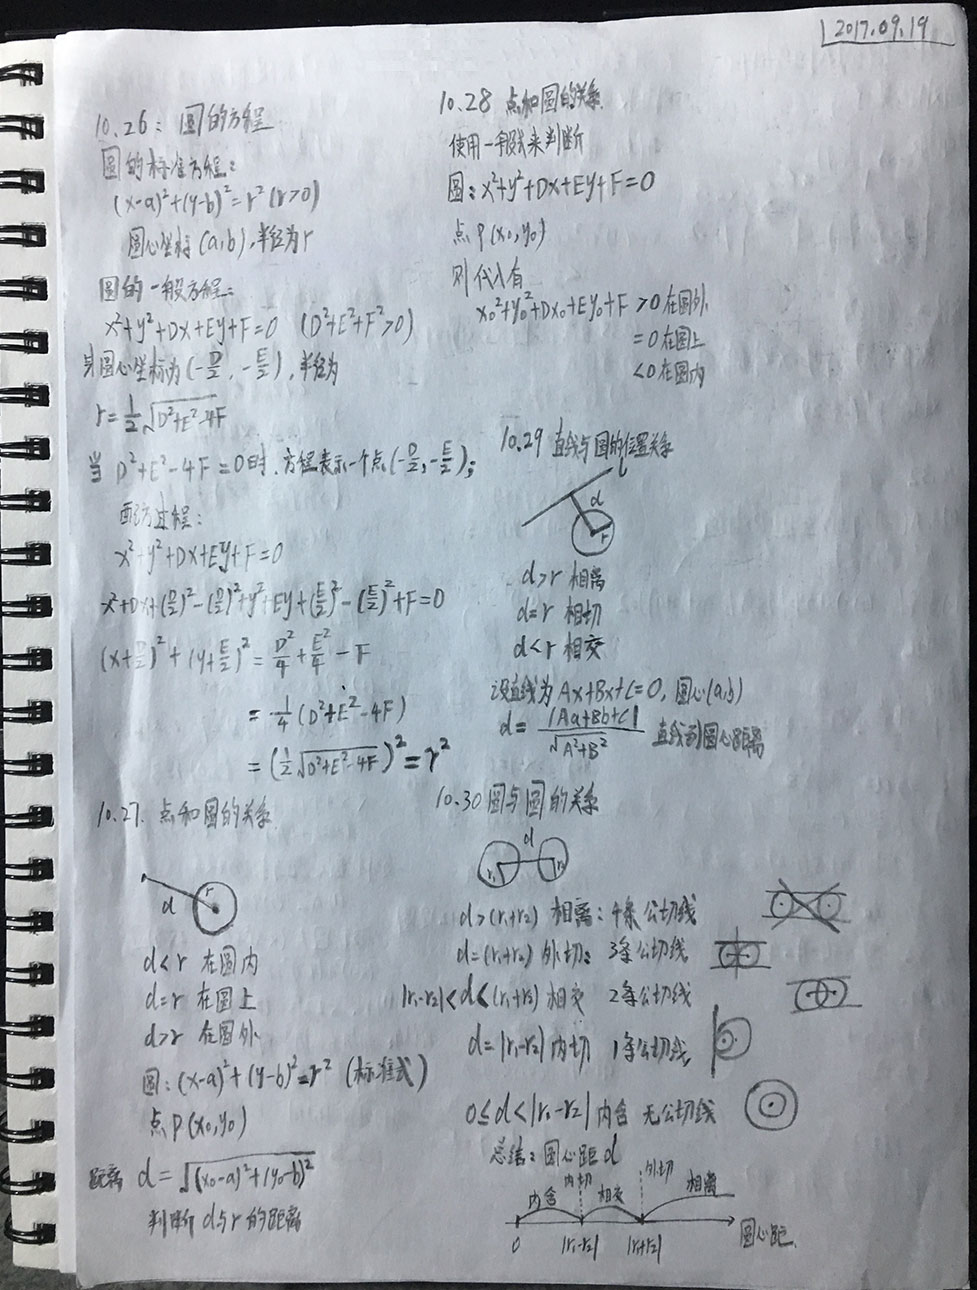 2017.09.19
10.26: 圆的方程
圆的标准方程:
(x-a)²+(y-b)²=r² (r>0)
圆心坐标(a,b),半径为r
圆的一般方程:
x²+y²+Dx+Ey+F=0 (D²+E²+F²>0)
圆心坐标为(-D/2, -E/2), 半径为
r=1/2√D²+E²-4F
当 D²+E²-4F=0时,方程表示一个点(-D/2,-E/2);
配方过程:
x²+y²+Dx+Ey+F=0
x²+Dx+(D/2)²-(D/2)²+y²+Ey+(E/2)²-(E/2)²+F=0
(x+D/2)²+(y+E/2)²=D²/4+E²/4-F
=1/4(D²+E²-4F)
=(1/2√D²+E²-4F)²=r²
10.27. 点和圆的关系
d
r
d<r 在圆内
d=r 在圆上
d>r 在圆外
圆:(x-a)²+(y-b)²=r² (标准式)
点P(x₀,y₀)
距离 d=√(x₀-a)²+(y₀-b)²
判断d与r的距离
10.28 点和圆的关系
使用一般式来判断
圆:x²+y²+Dx+Ey+F=0
点P(x₀,y₀)
则代入有
x₀²+y₀²+Dx₀+Ey₀+F >0 在圆外
=0 在圆上
<0 在圆内
10.29 直线与圆的位置关系
l
d
r
d>r 相离
d=r 相切
d<r 相交
设直线为Ax+Bx+C=0, 圆心(a,b)
d=|Aa+Bb+C|/√A²+B² 直线到圆心距离
10.30 圆与圆的关系
d
r₁ r₂
d>(r₁+r₂) 相离: 4条公切线
d=(r₁+r₂) 外切: 3条公切线
|r₁-r₂|<d<(r₁+r₂) 相交 2条公切线
d=|r₁-r₂| 内切 1条公切线
0≤d<|r₁-r₂| 内含 无公切线
总结: 圆心距d
内含 内切 相交 外切 相离
0 |r₁-r₂| |r₁+r₂| 圆心距